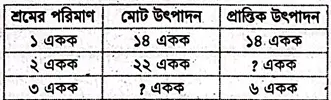 শ্রমের পরিমাণ মোট উৎপাদন প্রান্তিক উৎপাদন
১ একক ১৪ একক ১৪ একক
২ একক ২২ একক ? একক
৩ একক ? একক ৬ একক